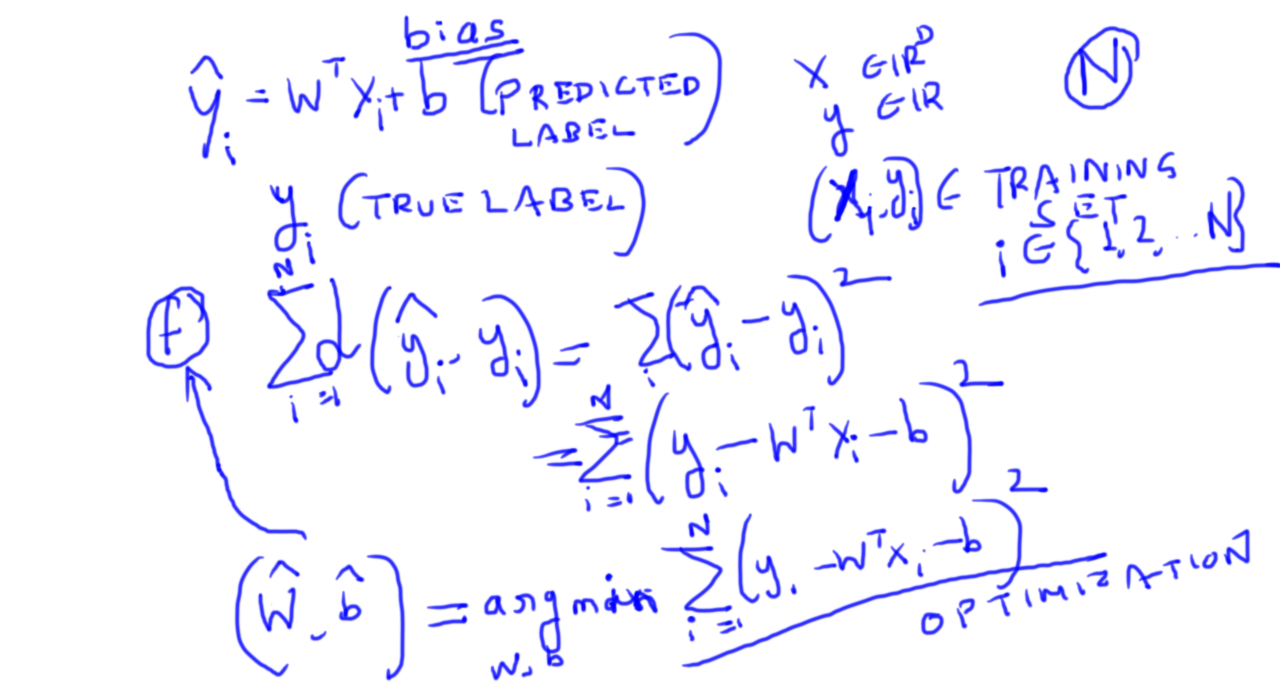 bias
ŷᵢ = Wᵀxᵢ + b (PREDICTED
LABEL)
x ∈ ℝᴰ
y ∈ ℝ
N
yᵢ (TRUE LABEL)
(xᵢ, yᵢ) ∈ TRAINING
SET
i ∈ {1, 2, .. N}
f
∑ᵢ₌₁ᴺ d(ŷᵢ, yᵢ) = ∑ᵢ (ŷᵢ − yᵢ)²
= ∑ᵢ₌₁ᴺ (yᵢ − Wᵀxᵢ − b)²
(Ŵ, b̂) = arg min ∑ᵢ₌₁ᴺ (yᵢ − Wᵀxᵢ − b)²
W, b
OPTIMIZATION